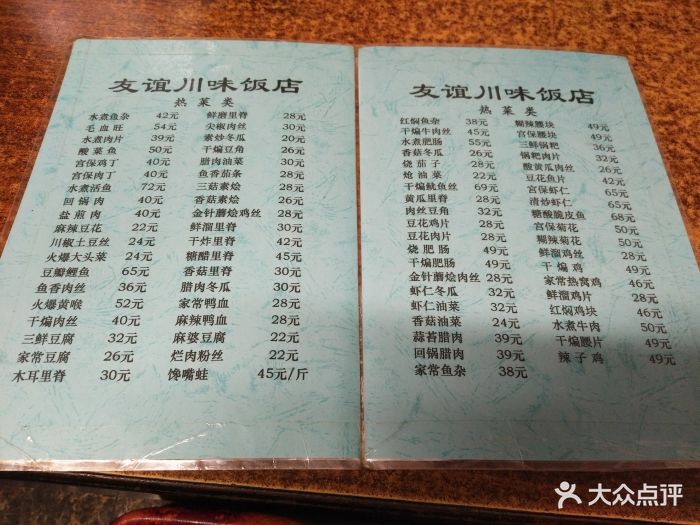 友谊川味饭店
热菜类
水煮鱼杂 42元 鲜磨里脊 28元
毛血旺 54元 尖椒肉丝 30元
水煮肉片 39元 素炒冬瓜 20元
酸菜鱼 50元 干煸豆角 26元
宫保鸡丁 40元 腊肉油菜 30元
宫保肉丁 40元 鱼香茄条 28元
水煮活鱼 72元 三菇素烩 28元
回锅肉 40元 香菇素烩 26元
盐煎肉 40元 金针蘑烩鸡丝 28元
麻辣豆花 22元 鲜溜里脊 30元
川椒土豆丝 24元 干炸里脊 42元
火爆大头菜 24元 糖醋里脊 45元
豆瓣鲤鱼 65元 香菇里脊 30元
鱼香肉丝 36元 腊肉冬瓜 30元
火爆黄喉 52元 家常鸭血 28元
干煸肉丝 40元 麻辣鸭血 28元
三鲜豆腐 32元 麻婆豆腐 22元
家常豆腐 26元 烂肉粉丝 22元
木耳里脊 30元 馋嘴蛙 45元/斤
友谊川味饭店
热菜类
红焖鱼杂 38元 糊辣腰块 49元
干煸牛肉丝 45元 宫保腰块 49元
水煮肥肠 55元 三鲜锅粑 36元
香菇冬瓜 26元 锅粑肉片 32元
烧茄子 28元 酸黄瓜肉丝 36元
炝油菜 22元 豆花鱼片 42元
干煸鱿鱼丝 69元 宫保虾仁 65元
黄瓜里脊 28元 清炒虾仁 65元
肉丝豆角 32元 糖酸脆皮鱼 68元
豆花鸡片 28元 宫保菊花 50元
豆花肉片 28元 糊辣菊花 50元
烧肥肠 49元 鲜溜鸡丝 28元
干煸肥肠 49元 干煸鸡 49元
金针蘑烩肉丝 28元 家常热窝鸡 46元
虾仁冬瓜 32元 鲜溜鸡片 28元
虾仁油菜 32元 红焖鸡块 46元
香菇油菜 24元 水煮牛肉 50元
蒜苔腊肉 39元 干煸腰子 49元
回锅腊肉 39元 辣子鸡 49元
家常鱼杂 38元
大众点评